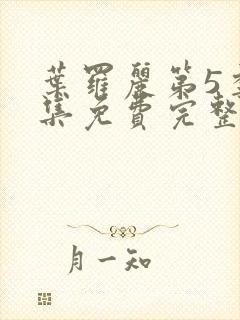 葉羅麗第5季
集免費完整
月一知